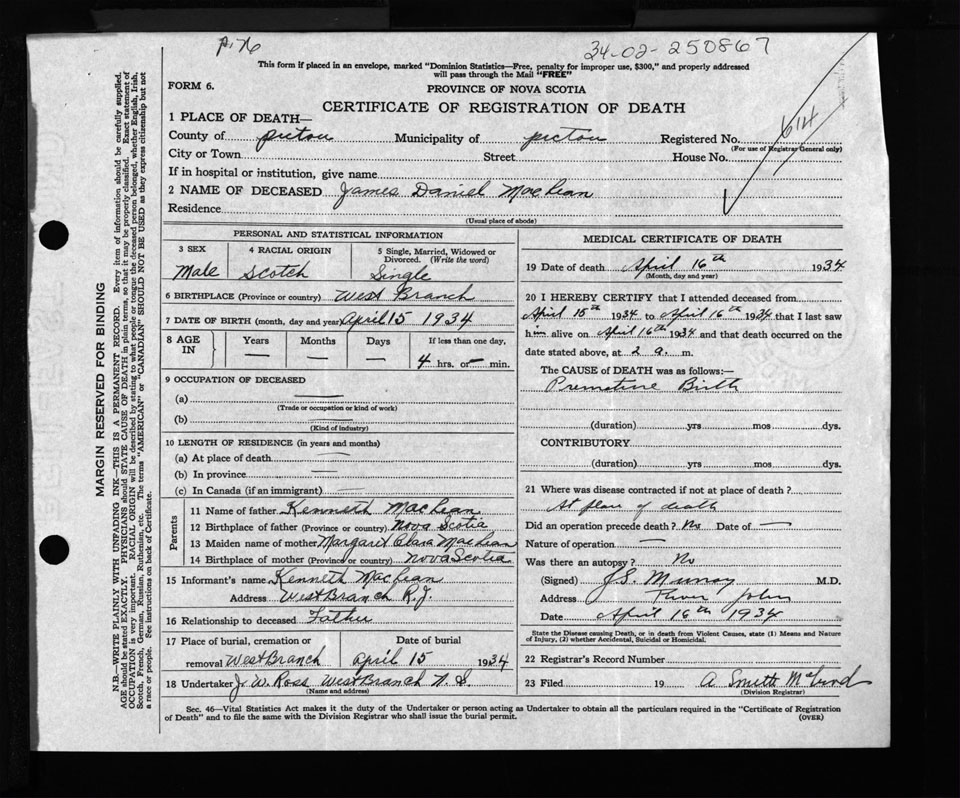 P. 76
34-02-250867
This form if placed in an envelope, marked "Dominion Statistics—Free, penalty for improper use, $300," and properly addressed
will pass through the Mail "FREE"
FORM 6.
PROVINCE OF NOVA SCOTIA
CERTIFICATE OF REGISTRATION OF DEATH
1 PLACE OF DEATH—
County of Pictou Municipality of Pictou Registered No. 614
(For use of Registrar General only)
City or Town Street House No.
If in hospital or institution, give name
2 NAME OF DECEASED James Daniel MacLean
Residence
(Usual place of abode)
PERSONAL AND STATISTICAL INFORMATION
3 SEX 4 RACIAL ORIGIN 5 Single, Married, Widowed or
Divorced. (Write the word)
Male Scotch Single
6 BIRTHPLACE (Province or country) West Branch
7 DATE OF BIRTH (month, day and year) April 15 1934
8 AGE IN Years Months Days If less than one day,
— — — 4 hrs. or — min.
9 OCCUPATION OF DECEASED
(a) —
(Trade or occupation or kind of work)
(b) —
(Kind of industry)
10 LENGTH OF RESIDENCE (in years and months)
(a) At place of death —
(b) In province —
(c) In Canada (if an immigrant) —
Parents
11 Name of father Kenneth MacLean
12 Birthplace of father (Province or country) Nova Scotia
13 Maiden name of mother Margaret Clara MacLean
14 Birthplace of mother (Province or country) Nova Scotia
15 Informant's name Kenneth MacLean
Address West Branch R.J.
16 Relationship to deceased Father
17 Place of burial, cremation or Date of burial
removal West Branch April 15 1934
18 Undertaker J. W. Ross West Branch N. S.
(Name and address)
MEDICAL CERTIFICATE OF DEATH
19 Date of death April 16th 1934
(Month, day and year)
20 I HEREBY CERTIFY that I attended deceased from
April 15th 1934 to April 16th 1934 that I last saw
him alive on April 16th 1934 and that death occurred on the
date stated above, at 2 a. m.
The CAUSE of DEATH was as follows:—
Premature Birth
(duration) yrs mos dys.
CONTRIBUTORY
(duration) yrs mos dys.
21 Where was disease contracted if not at place of death?
At place of death
Did an operation precede death? No Date of —
Nature of operation —
Was there an autopsy? No
(Signed) J.S. Murray M.D.
Address River John
Date April 16th 1934
State the Disease causing Death, or in death from Violent Causes, state (1) Means and Nature
of Injury, (2) whether Accidental, Suicidal or Homicidal.
22 Registrar's Record Number
23 Filed 19 A Smith
(Division Registrar)
Sec. 46—Vital Statistics Act makes it the duty of the Undertaker or person acting as Undertaker to obtain all the particulars required in the "Certificate of Registration
of Death" and to file the same with the Division Registrar who shall issue the burial permit.
(OVER)
MARGIN RESERVED FOR BINDING
N.B.—WRITE PLAINLY WITH UNFADING INK—THIS IS A PERMANENT RECORD. Every item of information should be carefully supplied.
AGE should be stated EXACTLY. PHYSICIANS should STATE CAUSE OF DEATH in plain terms, so that it may be properly classified. Exact statement of
OCCUPATION is very important. RACIAL ORIGIN will be described by stating to what people or tongue the deceased person belonged, whether English, Irish,
Scotch, French, German, Russian, Ruthenian, etc. The terms "AMERICAN" or "CANADIAN" SHOULD NOT BE USED as they express citizenship but not
a race or people. See instructions on back of Certificate.